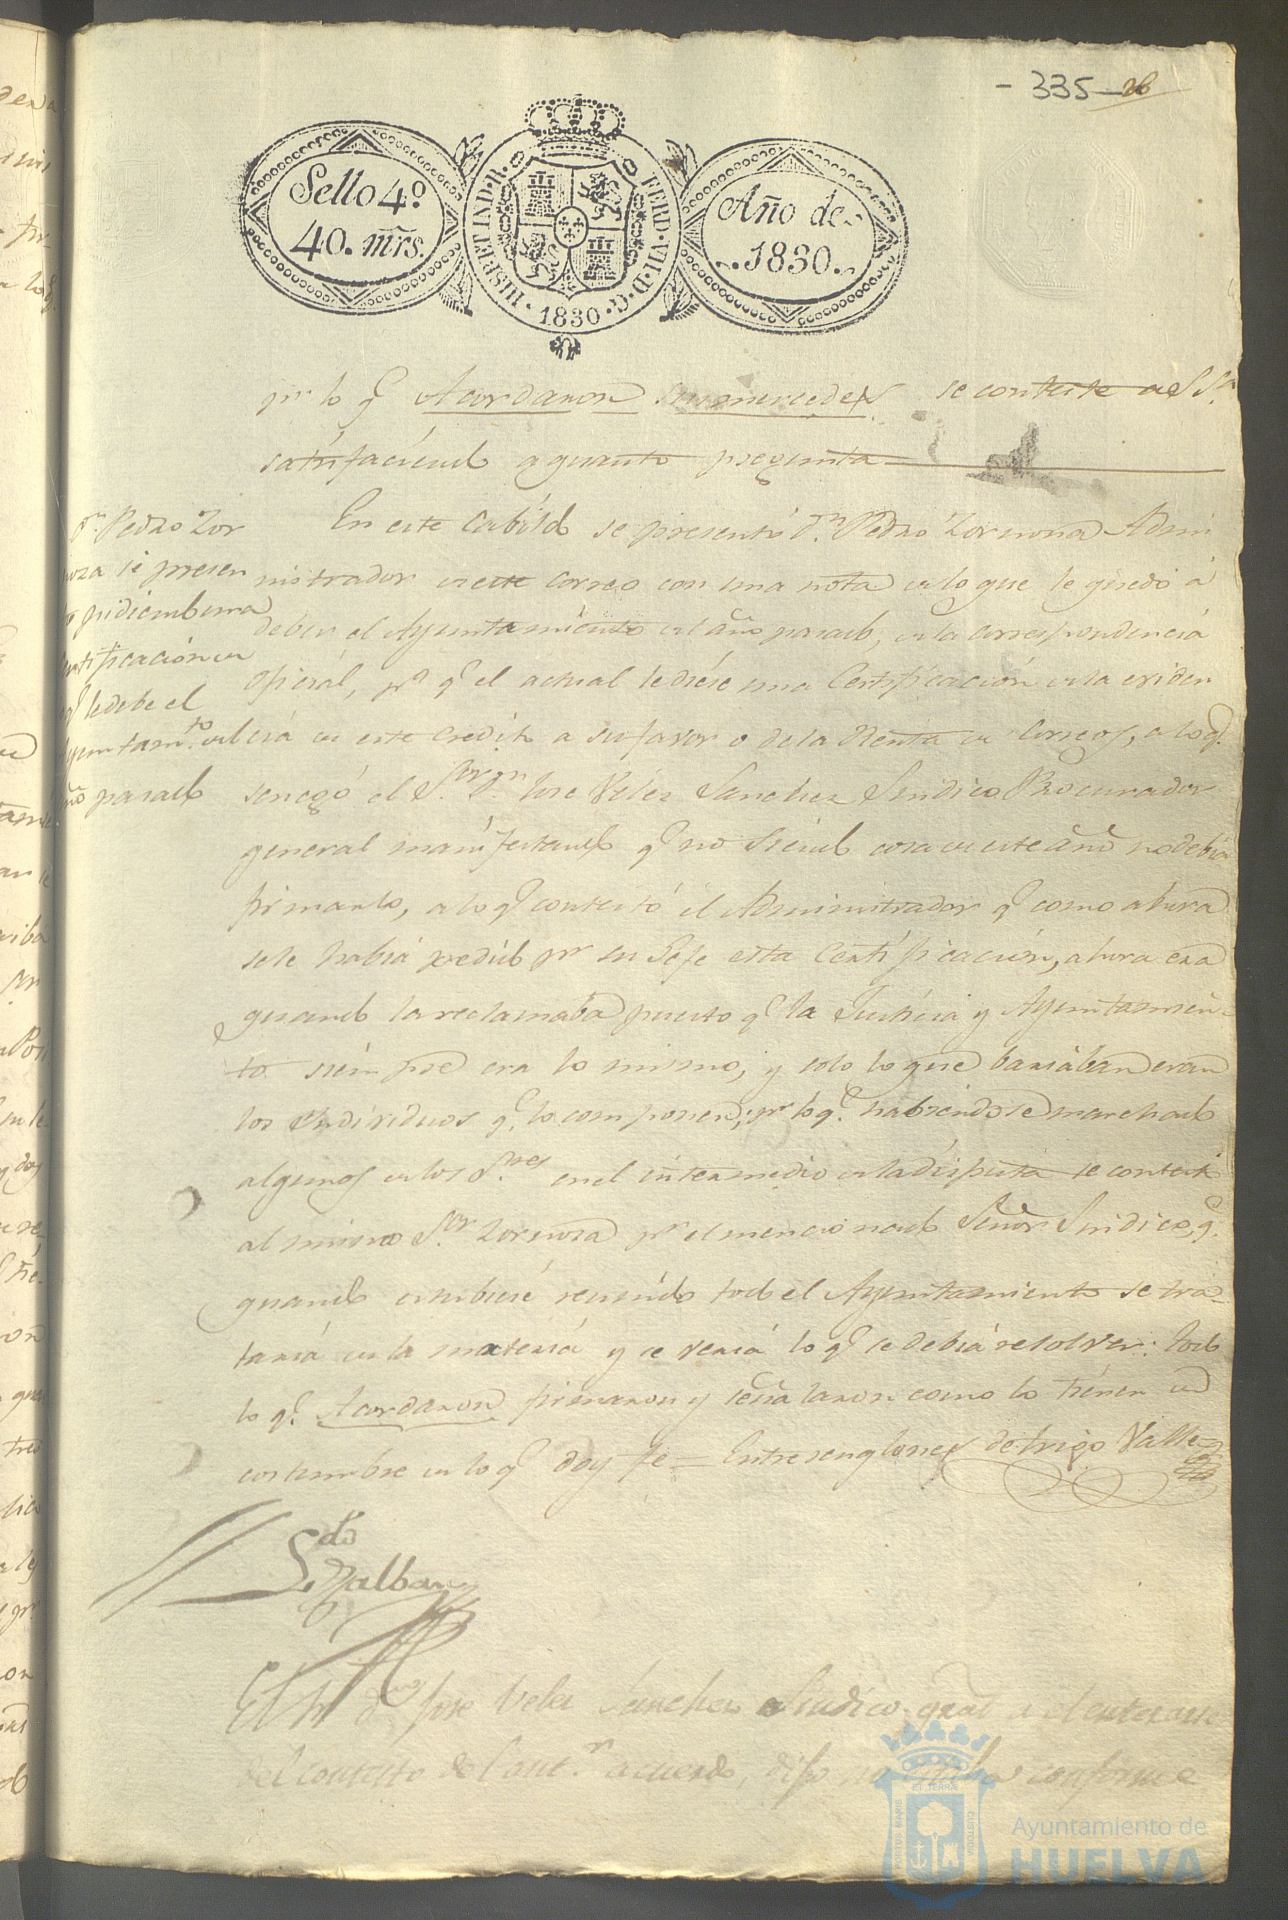 - 335 - 26
Sello 4º.
40. mrs.
HISP. ET IND. R. FERD. VII. D. G. 1830
Año de
1830.
pr lo q Acordaron sus mercedes se conteste a S Sa
satisfaciend a quanto pregunta
Dn. Pedro Zor
noza se presen
pidiend una
Certificacion en
q le debe el
Ayuntamto. en el
año pasado
En este Cabild se presentó Dn. Pedro Zornoza Admi
nistrador en este correo con una nota en lo que le quedó á
deber el Ayuntamiento en el año pasado, en la correspondencia
oficial, pa q el actual le diese una Certificacion en la eviden
cia en este credito a su favor o de la Renta en Correos, a lo q.
se negó el Sor. Dn. Jose Velez Sanchez Sindico Procurador
general manifestand q no siend cosa en este año no debia
firmarlo, a lo q contestó el Administrador q como ahora
se le habia pedido pr su Gefe esta Certificacion, ahora era
quand la reclamaba puesto q la Justicia y Ayuntamien
to siempre era lo mismo, y solo lo que bariaban eran
los Individuos q. lo componen; pr lo q. habiendose marchado
algunos en los Sres en el intermedio en la disputa se contestó
al mismo Sor Zornoza pr el mencionado Señor Sindico, q.
quand estubiese reunido tod el Ayuntamiento se tra-
taria en la materia y se veria lo q se debia resolver: tod
lo q. Acordaron firmaron y señalaron como lo tienen en
costumbre en lo q doy fe = Entrerenglones de trigo Valle
Sdo
Malban
El Sr Dn Jose Velez Sanchez Sindico gral a el enterarse
del contesto del antr. acuerdo, dijo no conforme
Ayuntamiento de
HUELVA